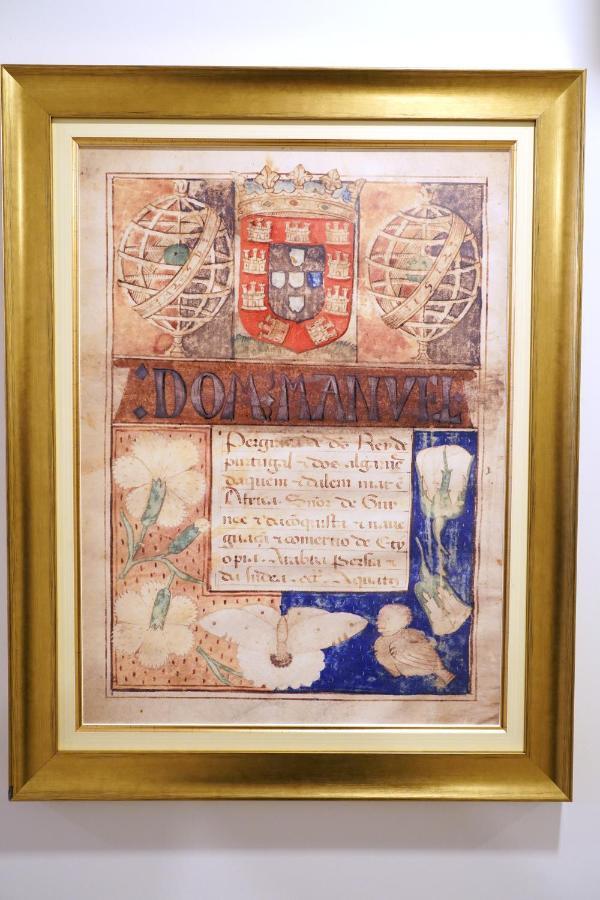 :DOM:MANVEL
Pergraça de ds Rey de
purtugal ⁊ dos algarue
daquem ⁊ dalem mar ē
Africa Sñor de Gui
nee ⁊ da cõquista ⁊ naue
guaçã ⁊ comercio de Ety
opia Arabia Persia ⁊
da Jndea